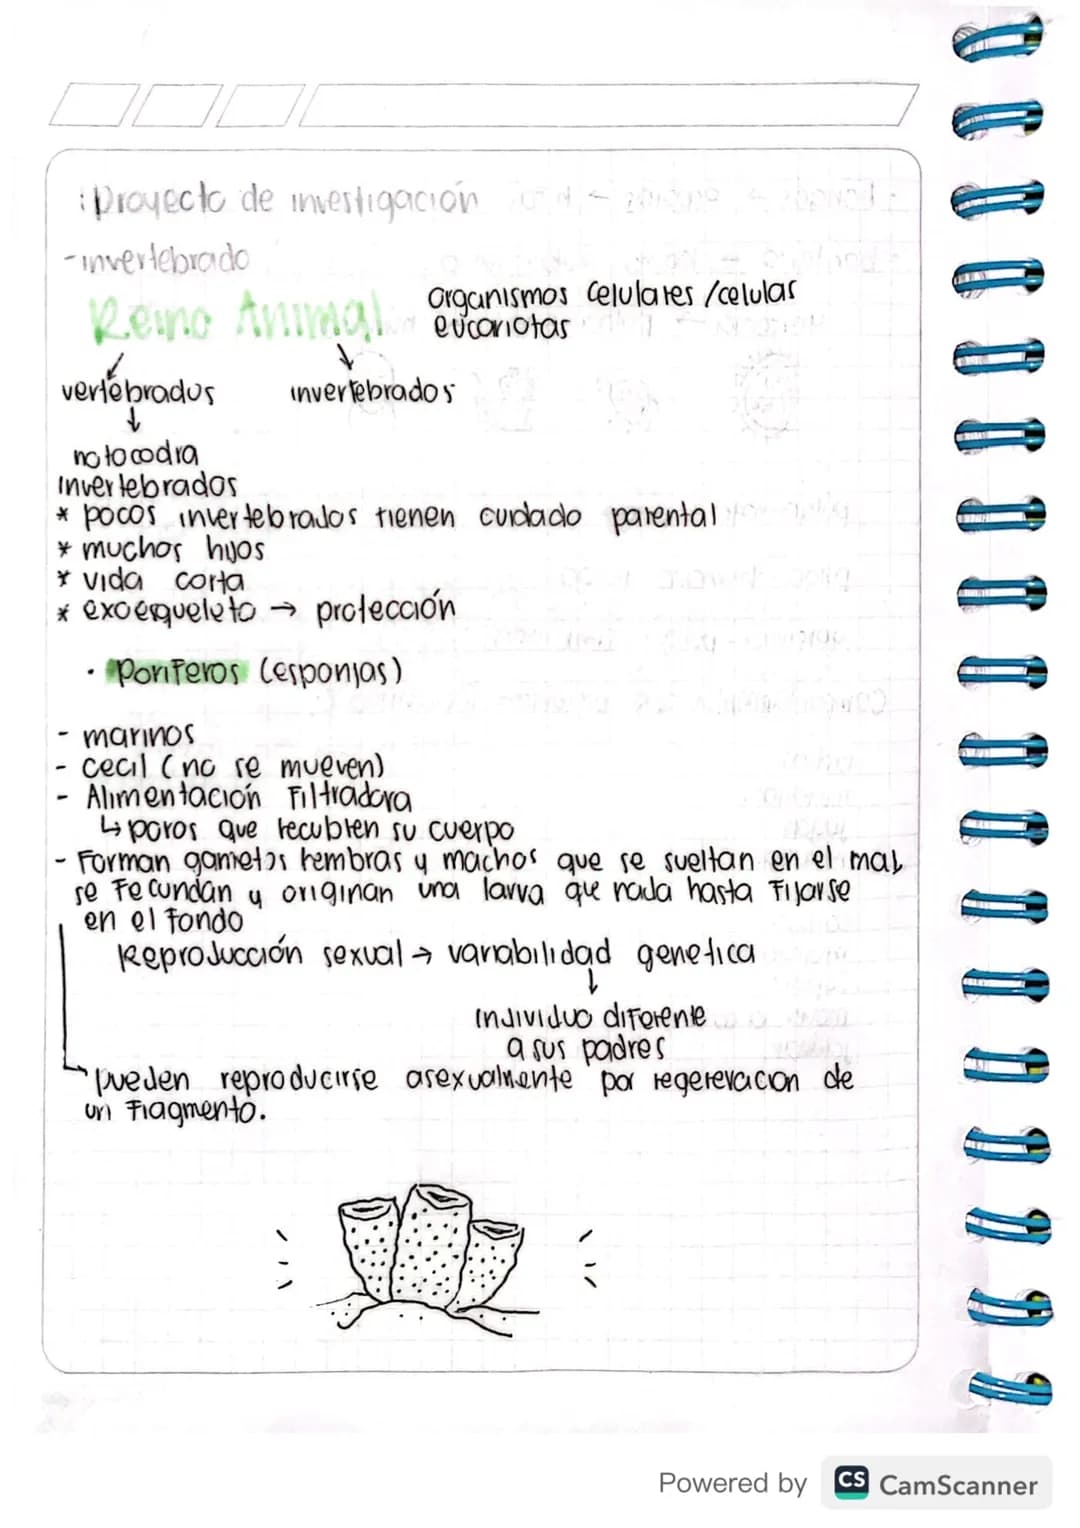 : Proyecto de investigación
- invertebrado
Reino Animal
organismos celulares / celulas
eucariotas
vertebrados invertebrados
notocodra
invertebrados
* pocos invertebrados tienen cuidado parental
* muchos hijos
* vida corta
* exoesqueleto → protección
· Poriferos (esponjas)
- marinos
- cecil (no se mueven)
- Alimentación Filtradora
↳ poros que recubren su cuerpo
- Forman gametos hembras y machos que se sueltan en el mar,
se fecundan y originan una larva que nada hasta Fijarse
en el fondo
Reproducción sexual → variabilidad genetica
individuo diferente
a sus padres
pueden reproducirse asexualmente por regereracion de
un Fragmento.
Powered by CS CamScanner